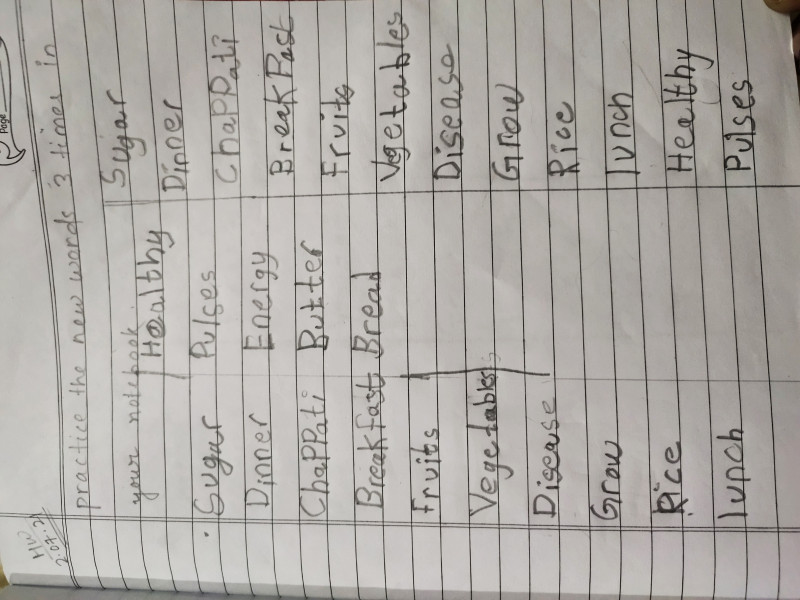 Page
HW
2.07.21
practice the new words 3 times in
your notebook.
Sugar
Dinner
ChaPPati
Breakfast
Fruits
Vegetables
Disease
Grow
Rice
lunch
Healthy
Pulses
Energy
Butter
Bread
Sugar
Dinner
ChaPPati
BreakFast
Fruits
Vegetables
Disease
Grow
Rice
lunch
Healthy
Pulses